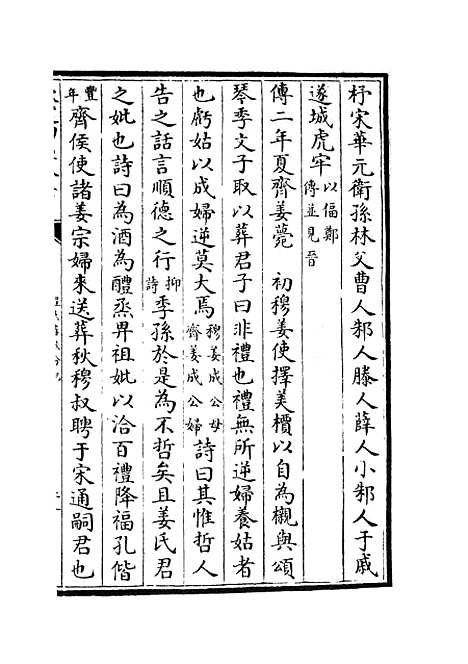 杼宋華元衛孫林父曹人邾人滕人薛人小邾人于戚
遂城虎牢以偪鄭傳並見晉
傳二年夏齊姜薨　初穆姜使擇美檟以自為櫬與頌
琴季文子取以葬君子曰非禮也禮無所逆婦養姑者
也虧姑以成婦逆莫大焉穆姜成公母齊姜成公婦詩曰其惟哲人
告之話言順德之行抑詩季孫於是為不哲矣且姜氏君
之妣也詩曰為酒為醴烝畀祖妣以洽百禮降福孔偕
豐年齊侯使諸姜宗婦來送葬秋穆叔聘于宋通嗣君也